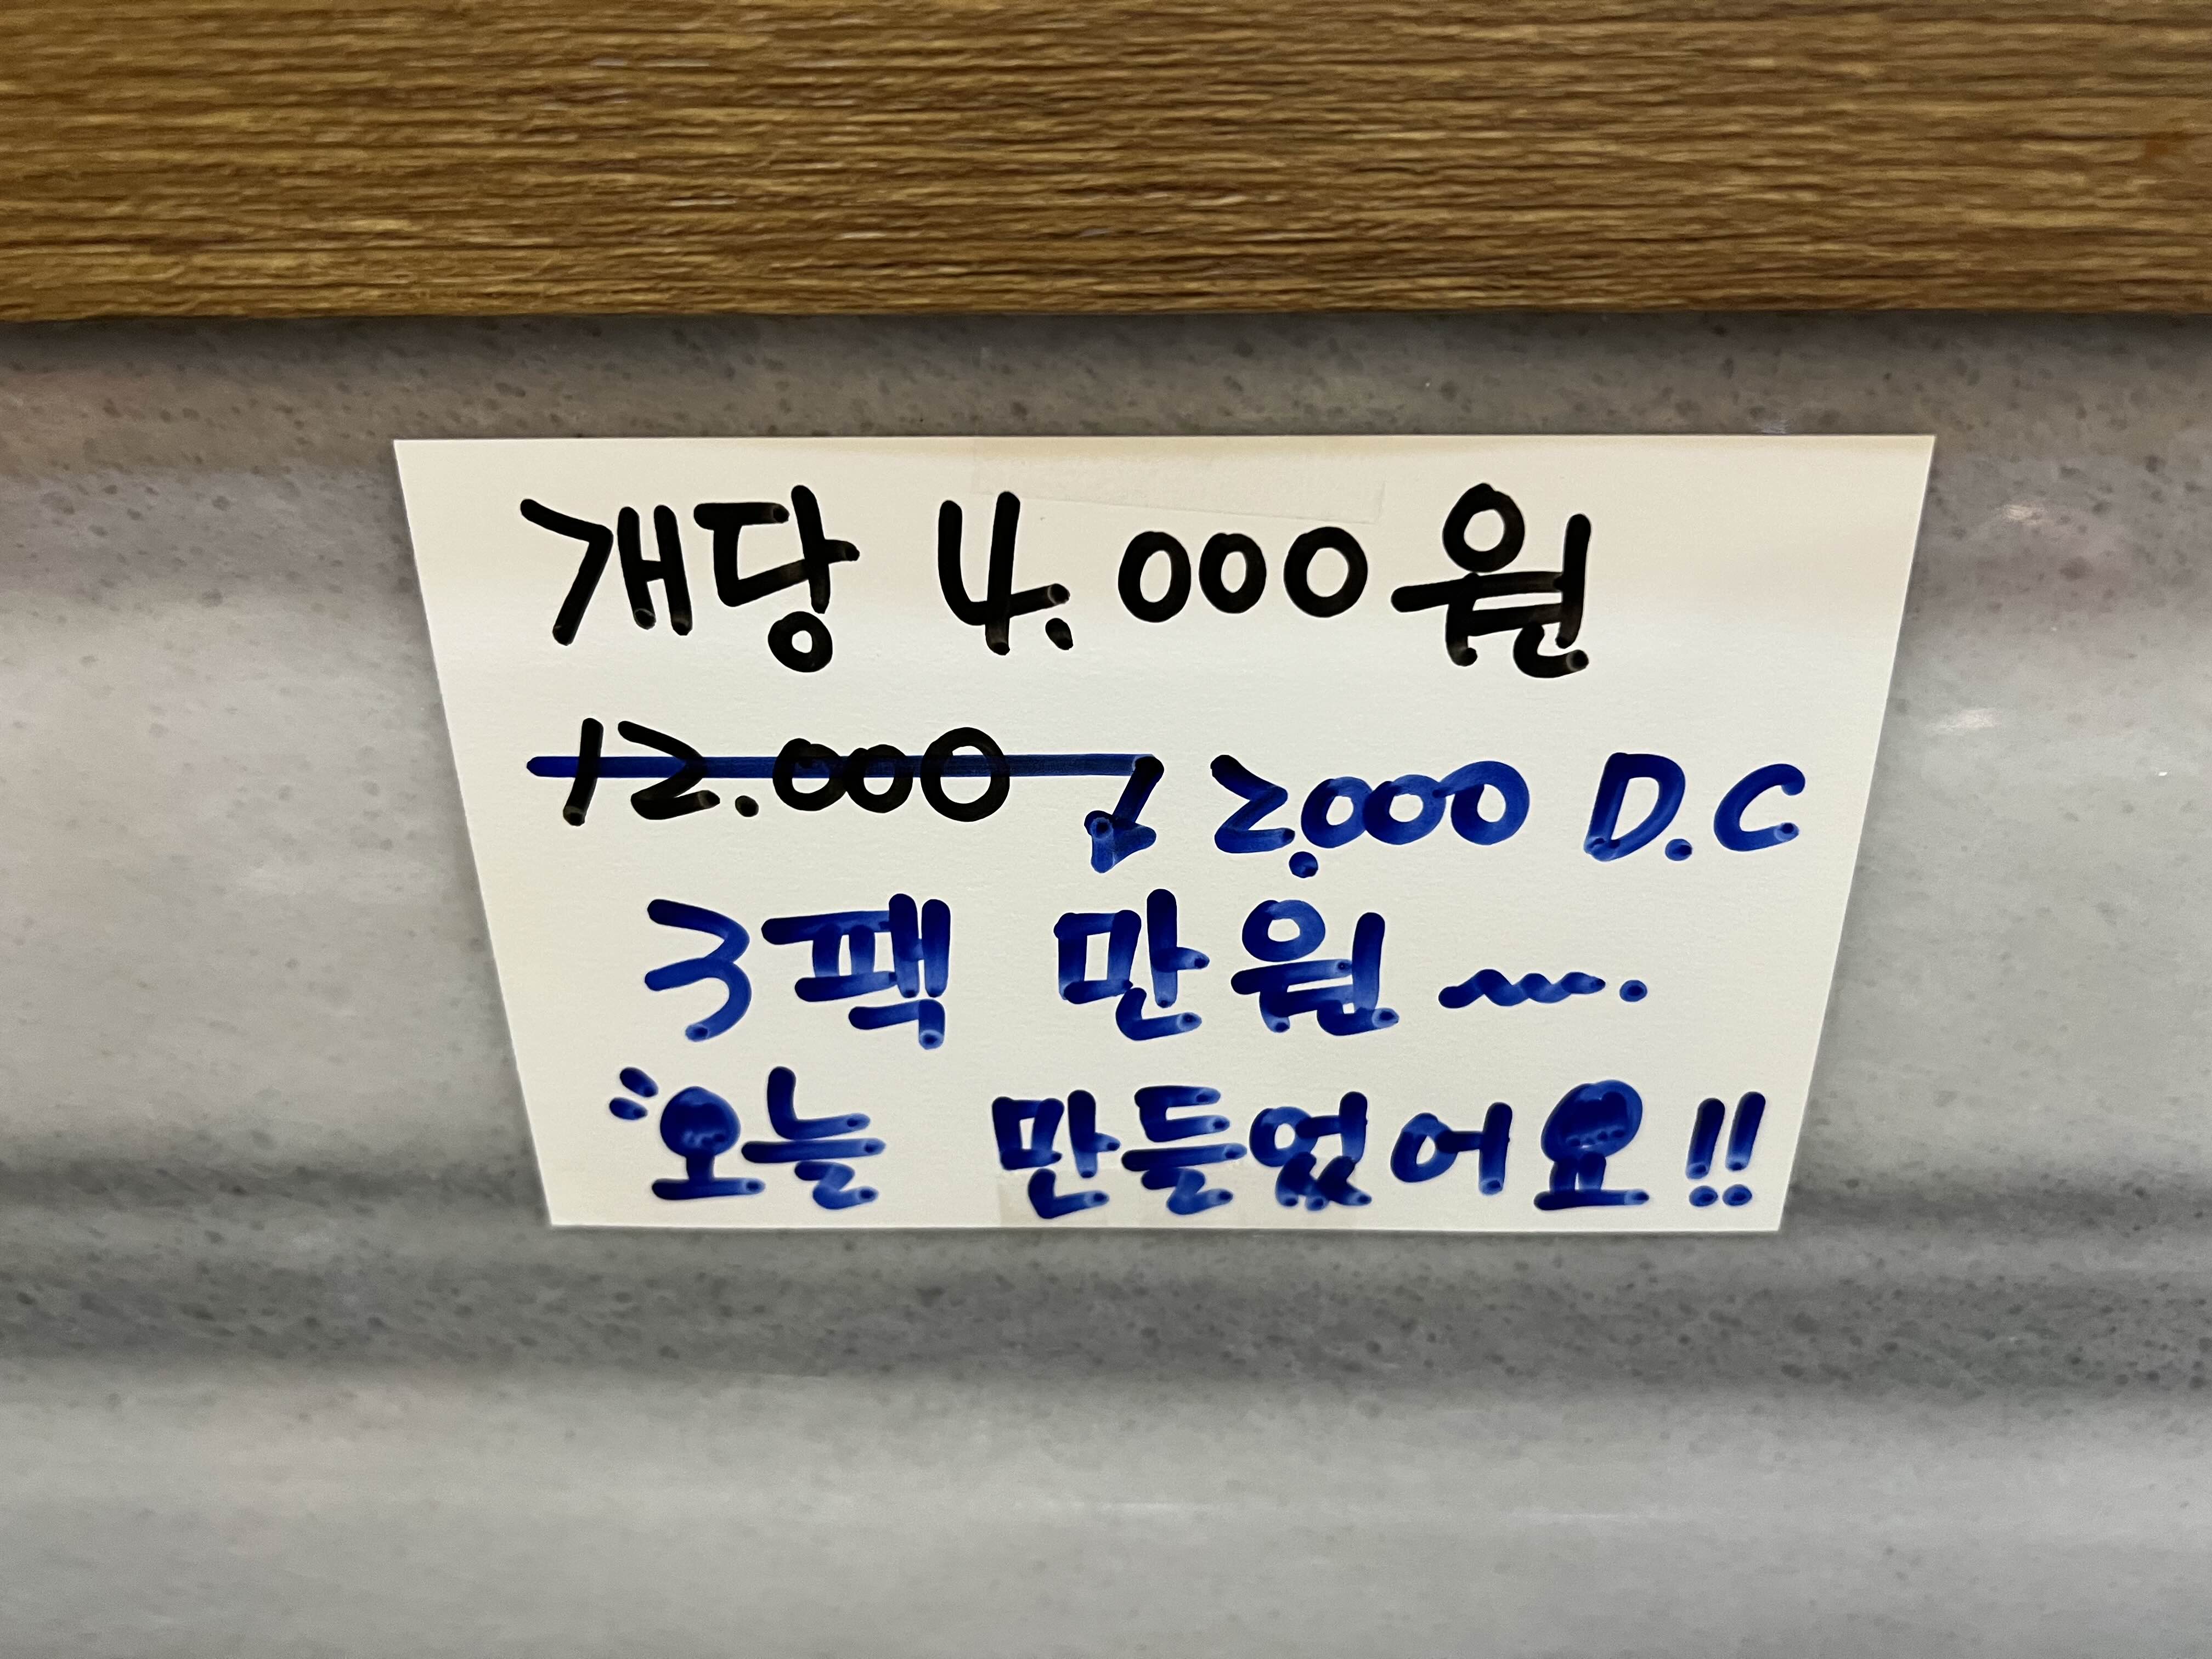 개당 4.000원
12.000 2.000 D.C
3팩 만원~.
"오늘 만들었어요!!